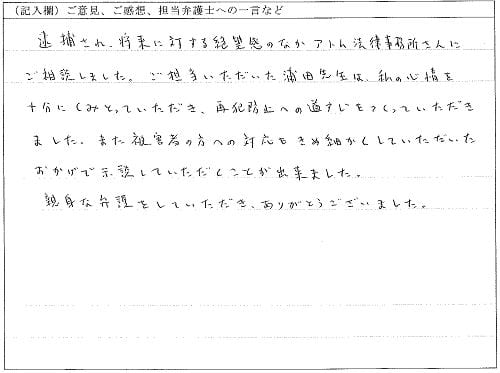 （記入欄）ご意見、ご感想、担当弁護士への一言など
逮捕され、将来に対する絶望感のなかアトム法律事務所さんに
ご相談しました。ご担当いただいた浦田先生は、私の心情を
十分にくみとっていただき、再犯防止への道すじをつくっていただき
ました。また被害者の方への対応もきめ細かくしていただいた
おかげで示談していただくことが出来ました。
親身な弁護をしていただき、ありがとうございました。